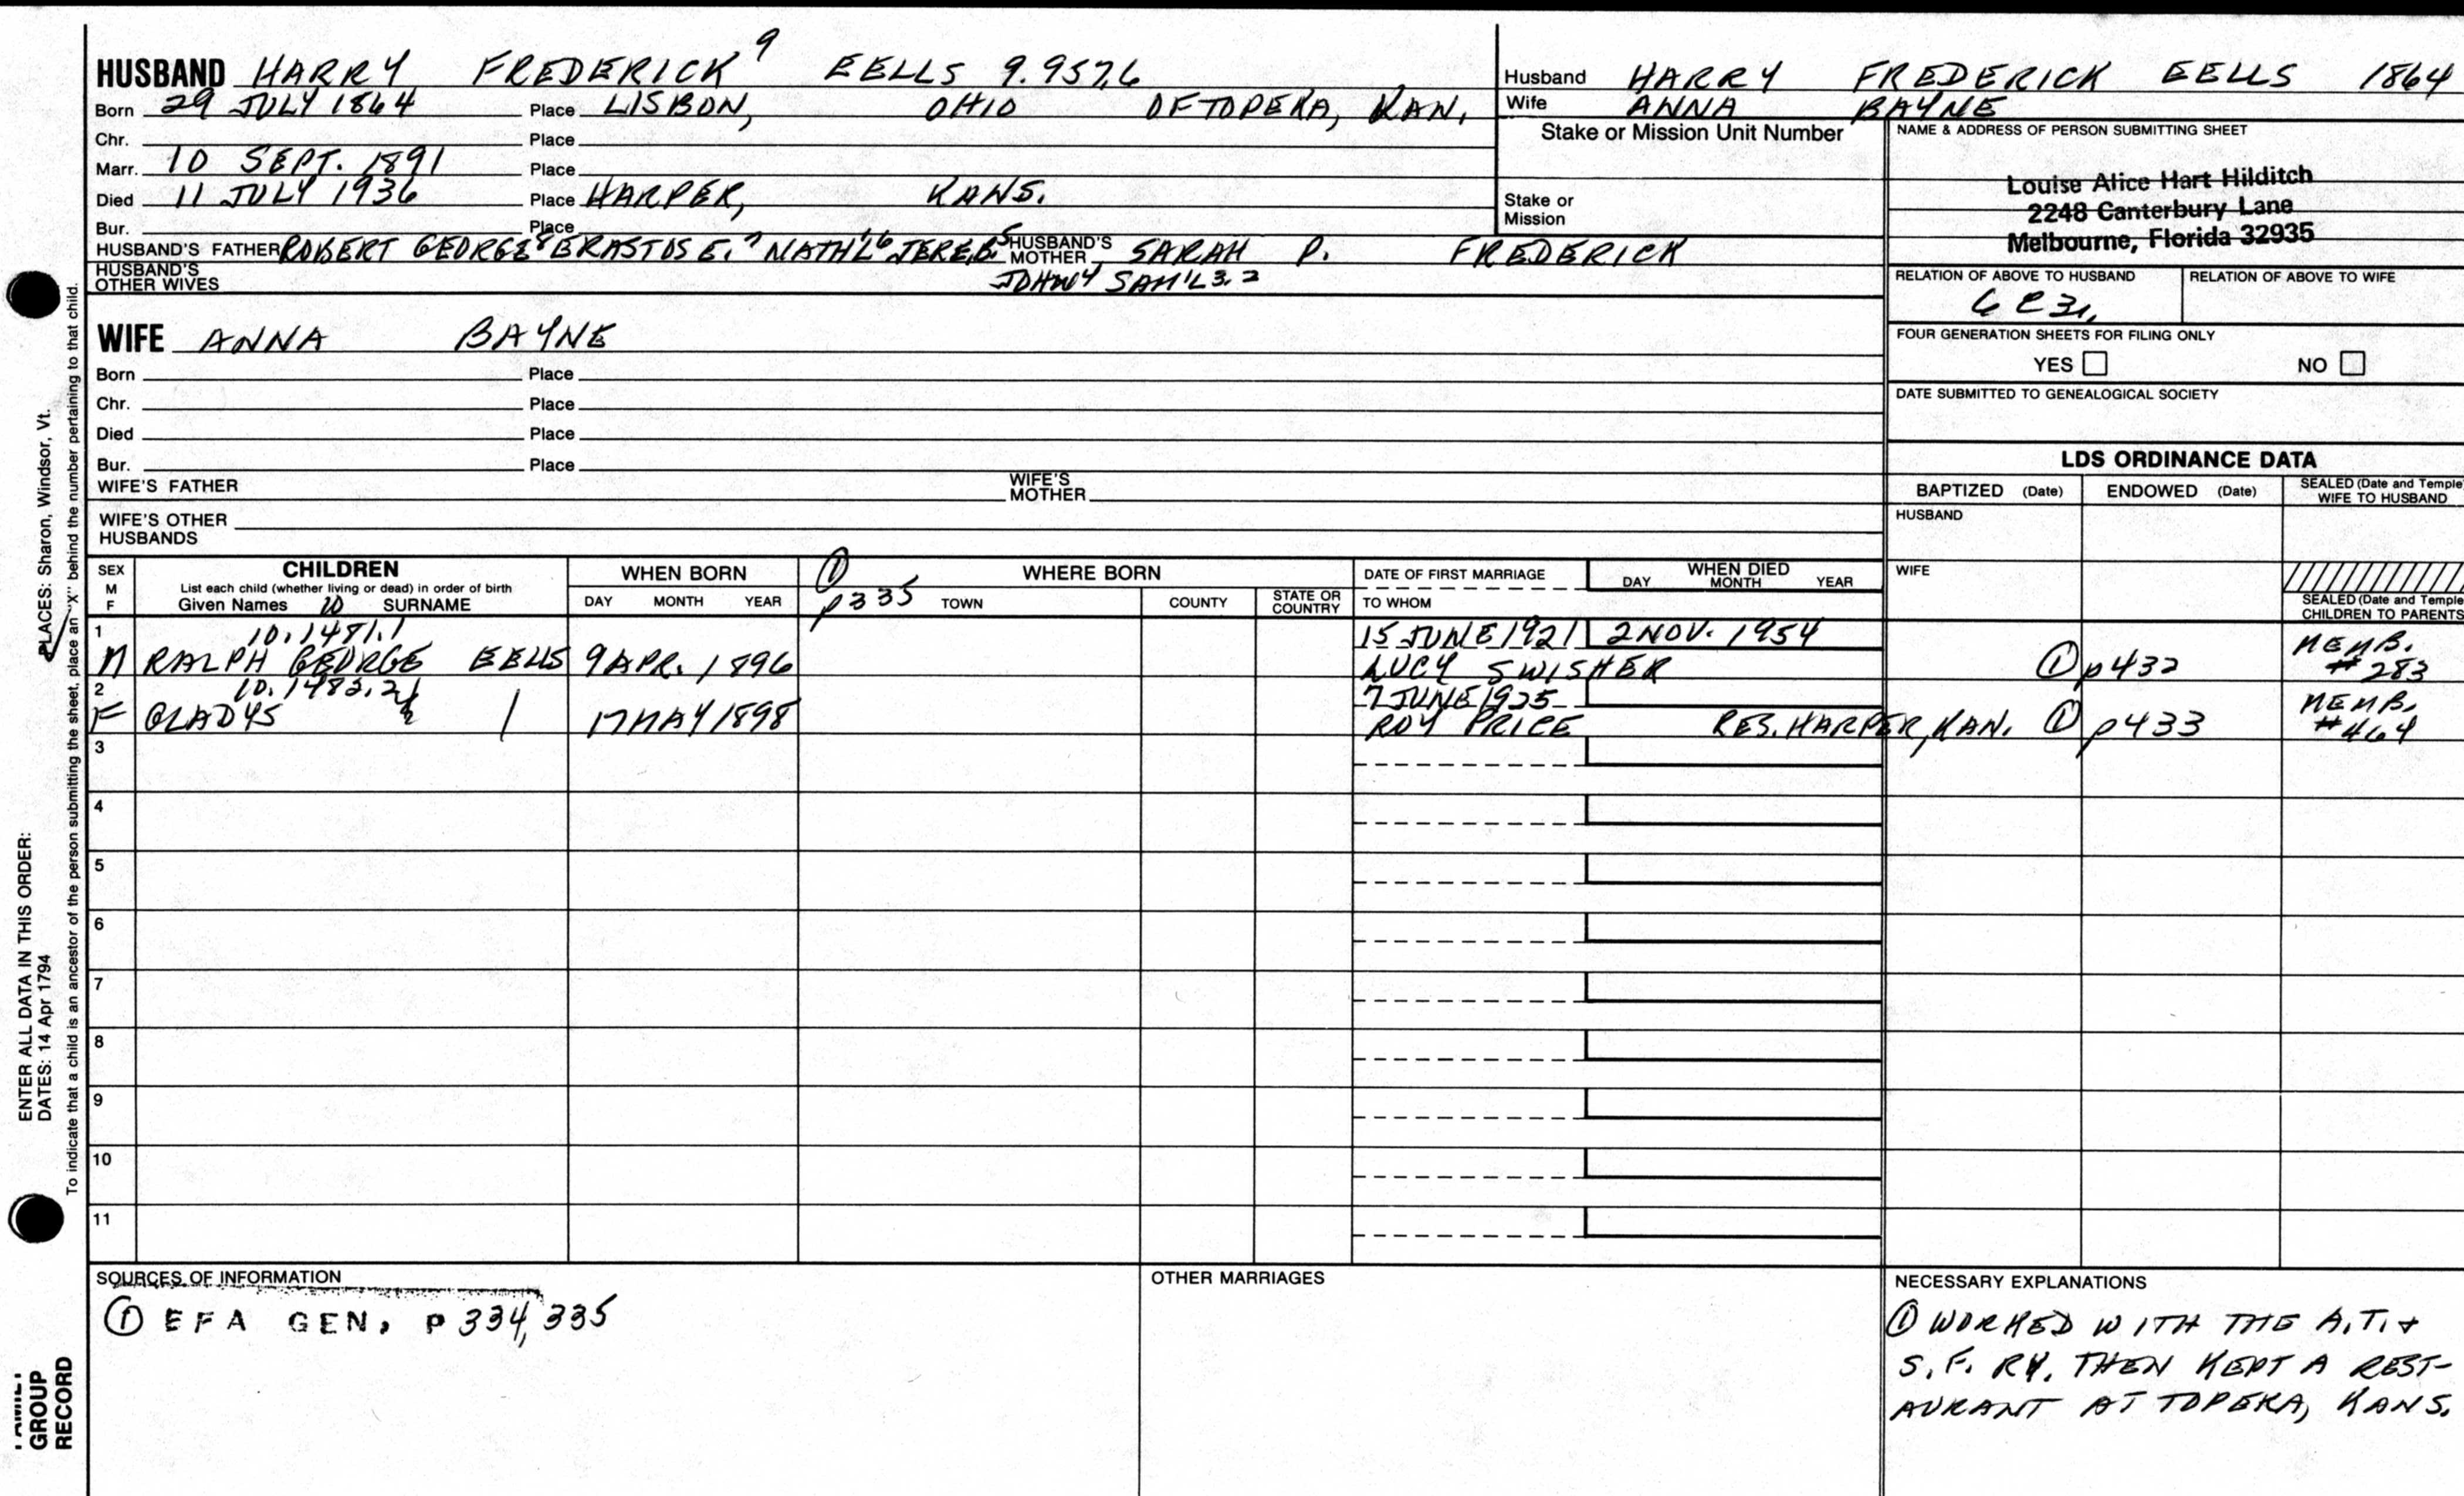 HUSBAND HARRY FREDERICK 9 EELLS 9.957.6
Born 29 JULY 1864 Place LISBON, OHIO OF TOPEKA, KAN.
Chr. Place
Marr. 10 SEPT. 1891 Place
Died 11 JULY 1936 Place HARPER, KANS.
Bur. Place
HUSBAND'S FATHER ROBERT GEORGE 8 ERASTUS E. 7 NATH'L 6 JERE.B. 5 HUSBAND'S MOTHER SARAH P. FREDERICK
HUSBAND'S OTHER WIVES JOHN 4 SAM'L 3. 2
Husband HARRY FREDERICK EELLS 1864
Wife ANNA BAYNE
Stake or Mission Unit Number
Stake or Mission
NAME & ADDRESS OF PERSON SUBMITTING SHEET
Louise Alice Hart Hilditch
2248 Canterbury Lane
Melbourne, Florida 32935
RELATION OF ABOVE TO HUSBAND RELATION OF ABOVE TO WIFE
6C3R
FOUR GENERATION SHEETS FOR FILING ONLY
YES NO
DATE SUBMITTED TO GENEALOGICAL SOCIETY
WIFE ANNA BAYNE
Born Place
Chr. Place
Died Place
Bur. Place
WIFE'S FATHER WIFE'S MOTHER
WIFE'S OTHER HUSBANDS
LDS ORDINANCE DATA
BAPTIZED (Date) ENDOWED (Date) SEALED (Date and Temple) WIFE TO HUSBAND
HUSBAND
WIFE
SEALED (Date and Temple) CHILDREN TO PARENTS
SEX M F
CHILDREN
List each child (whether living or dead) in order of birth
Given Names 10 SURNAME
WHEN BORN
DAY MONTH YEAR
① p335
WHERE BORN
TOWN COUNTY STATE OR COUNTRY
DATE OF FIRST MARRIAGE
TO WHOM
WHEN DIED
DAY MONTH YEAR
1 10.1481.1 15 JUNE 1921 2 NOV. 1954
M RALPH GEORGE EELLS 9 APR. 1896 LUCY SWISHER ① p432 MEMB. #283
2 10.1483.2 7 JUNE 1925
F GLADYS 17 MAY 1898 ROY PRICE RES. HARPER, KAN. ① p433 MEMB. #464
3
4
5
6
7
8
9
10
11
SOURCES OF INFORMATION
① EFA GEN, P 334, 335
OTHER MARRIAGES
NECESSARY EXPLANATIONS
① WORKED WITH THE A.T. +
S.F. RY. THEN KEPT A REST-
AURANT AT TOPEKA, KANS.
ENTER ALL DATA IN THIS ORDER:
DATES: 14 Apr 1794
PLACES: Sharon, Windsor, Vt.
To indicate that a child is an ancestor of the person submitting the sheet, place an "X" behind the number pertaining to that child.
FAMILY
GROUP
RECORD